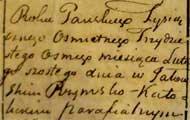 Roku Pańskiego Tysią-
cznego Osmsetnego Trzydzie-
stego Osmego miesiąca Lute-
go szostego dnia w
skim Rzymsko-Kato-
lickim parafialnym